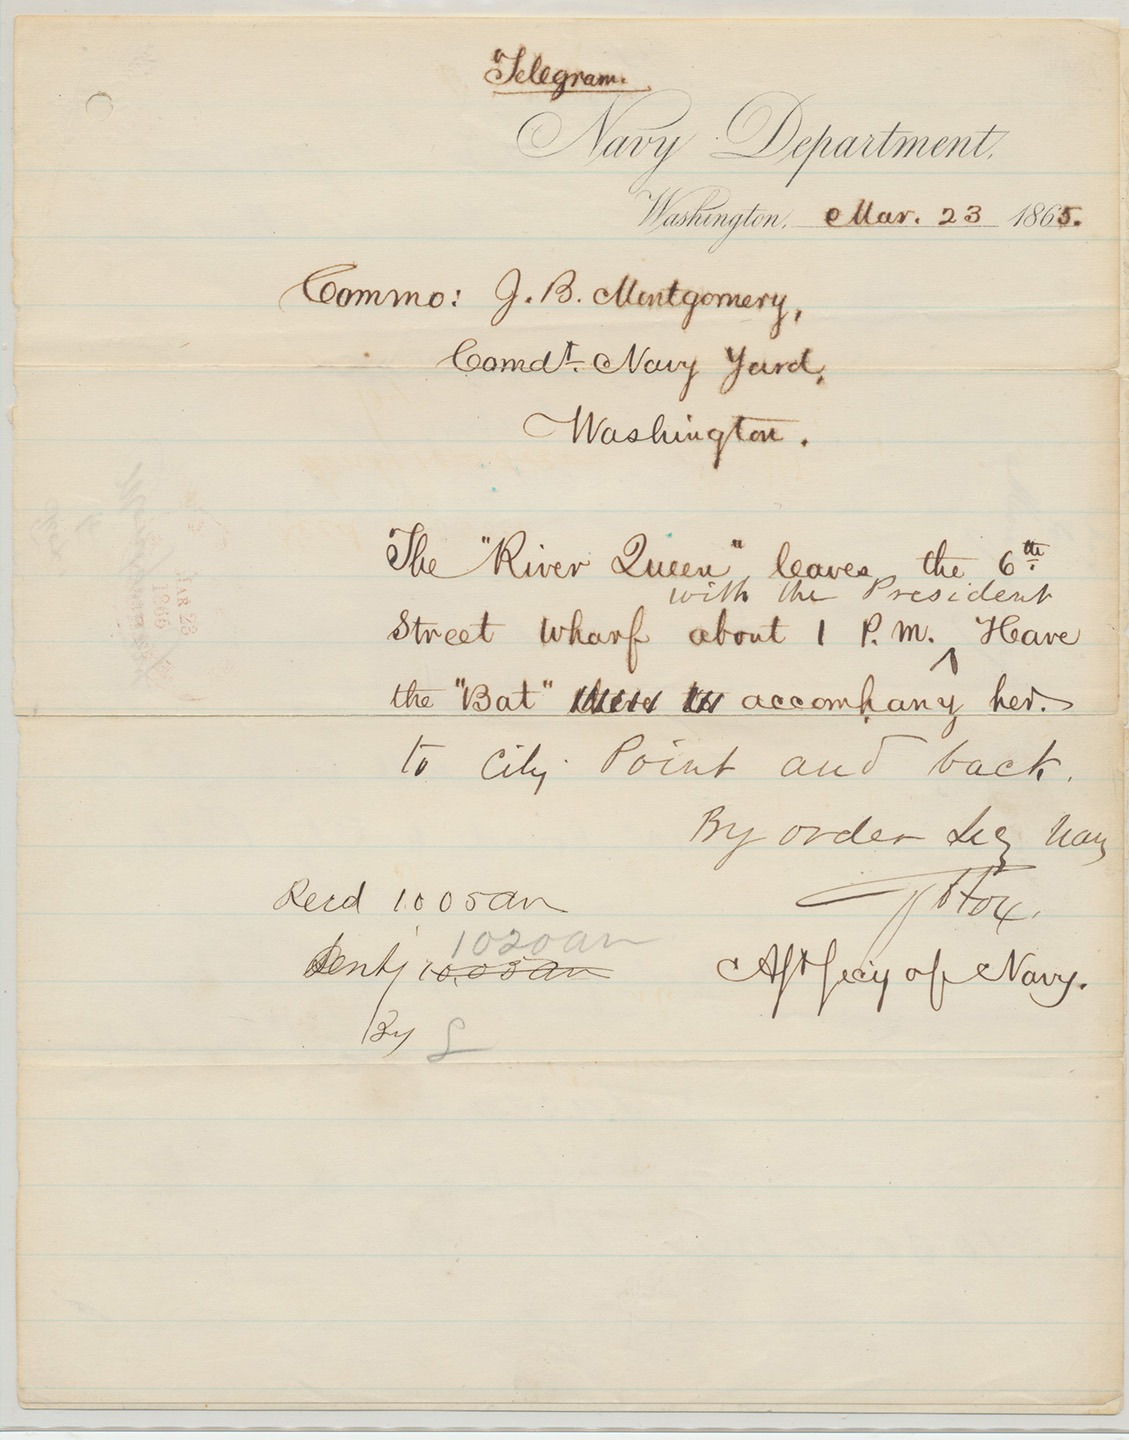 Telegram.
Navy Department.
Washington, Mar. 23 1865.
Commo: J. B. Montgomery,
Comdt. Navy Yard,
Washington.
The "River Queen" leaves the 6th
with the President
Street wharf about 1 P. M. ^ Have
the "Bat" accompany her.
to City Point and back.
By order Secy Navy
GVFox.
Recd 10 05 am
1020 am
Sent 10.05 am
Asst Secy of Navy.
By L
MAR 23
1865